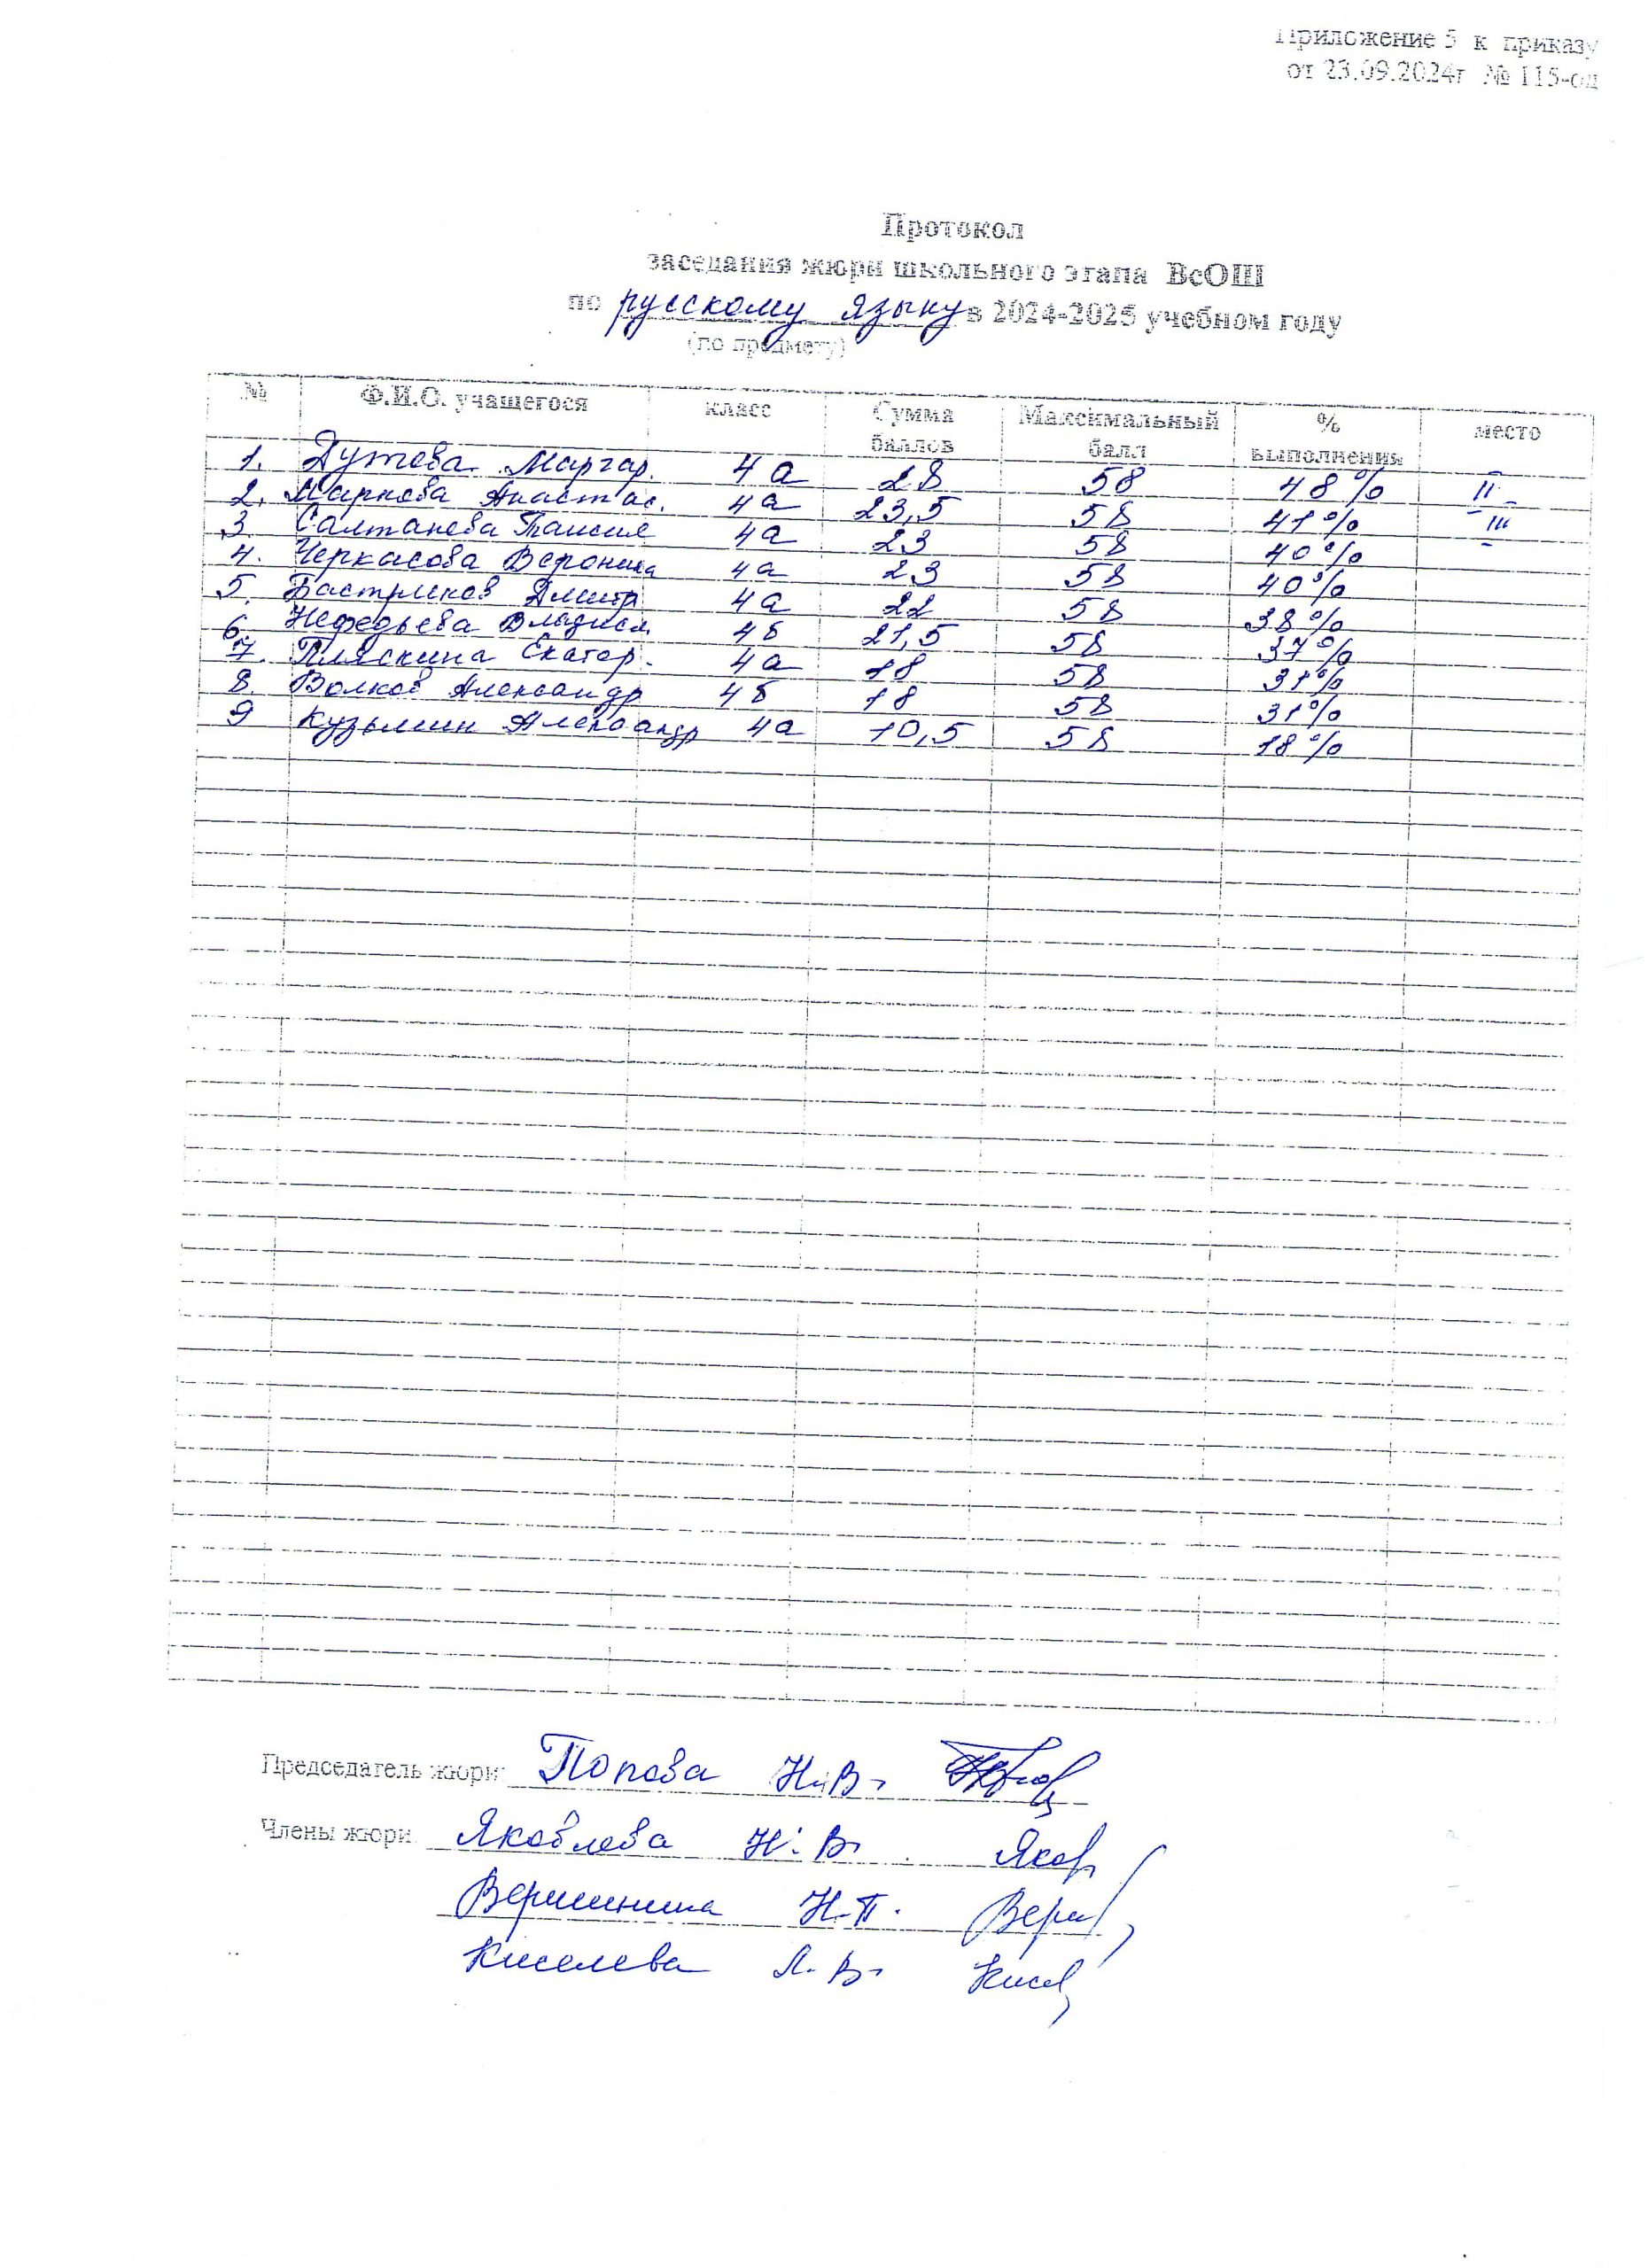 Приложение 5 к приказу
от 23.09.2024г № 115-од
Протокол
заседания жюри школьного этапа ВсОШ
по русскому языку в 2024-2025 учебном году
(по предмету)
№ Ф.И.О. учащегося класс Сумма баллов Максимальный балл % выполнения место
1. Маргар. 4а 28 58 48% II
2. Маркова Анастас. 4а 23,5 58 41% III
3. Салтанова Таисия 4а 23 58 40%
4. Черкасова Вероника 4а 23 58 40%
5. Бастриков Дмитр 4а 22 58 38%
6. Нефедьева Владисл. 4б 21,5 58 37%
7. Пляскина Екатер. 4а 18 58 31%
8. Волков Александр 4б 18 58 31%
9 Кузьмин Александр 4а 10,5 58 18%
Председатель жюри: Попова Н.В.
Члены жюри Яковлева Н.В. Яков
Вершинина Н.П. Верш
Киселева Л.В. Кисел